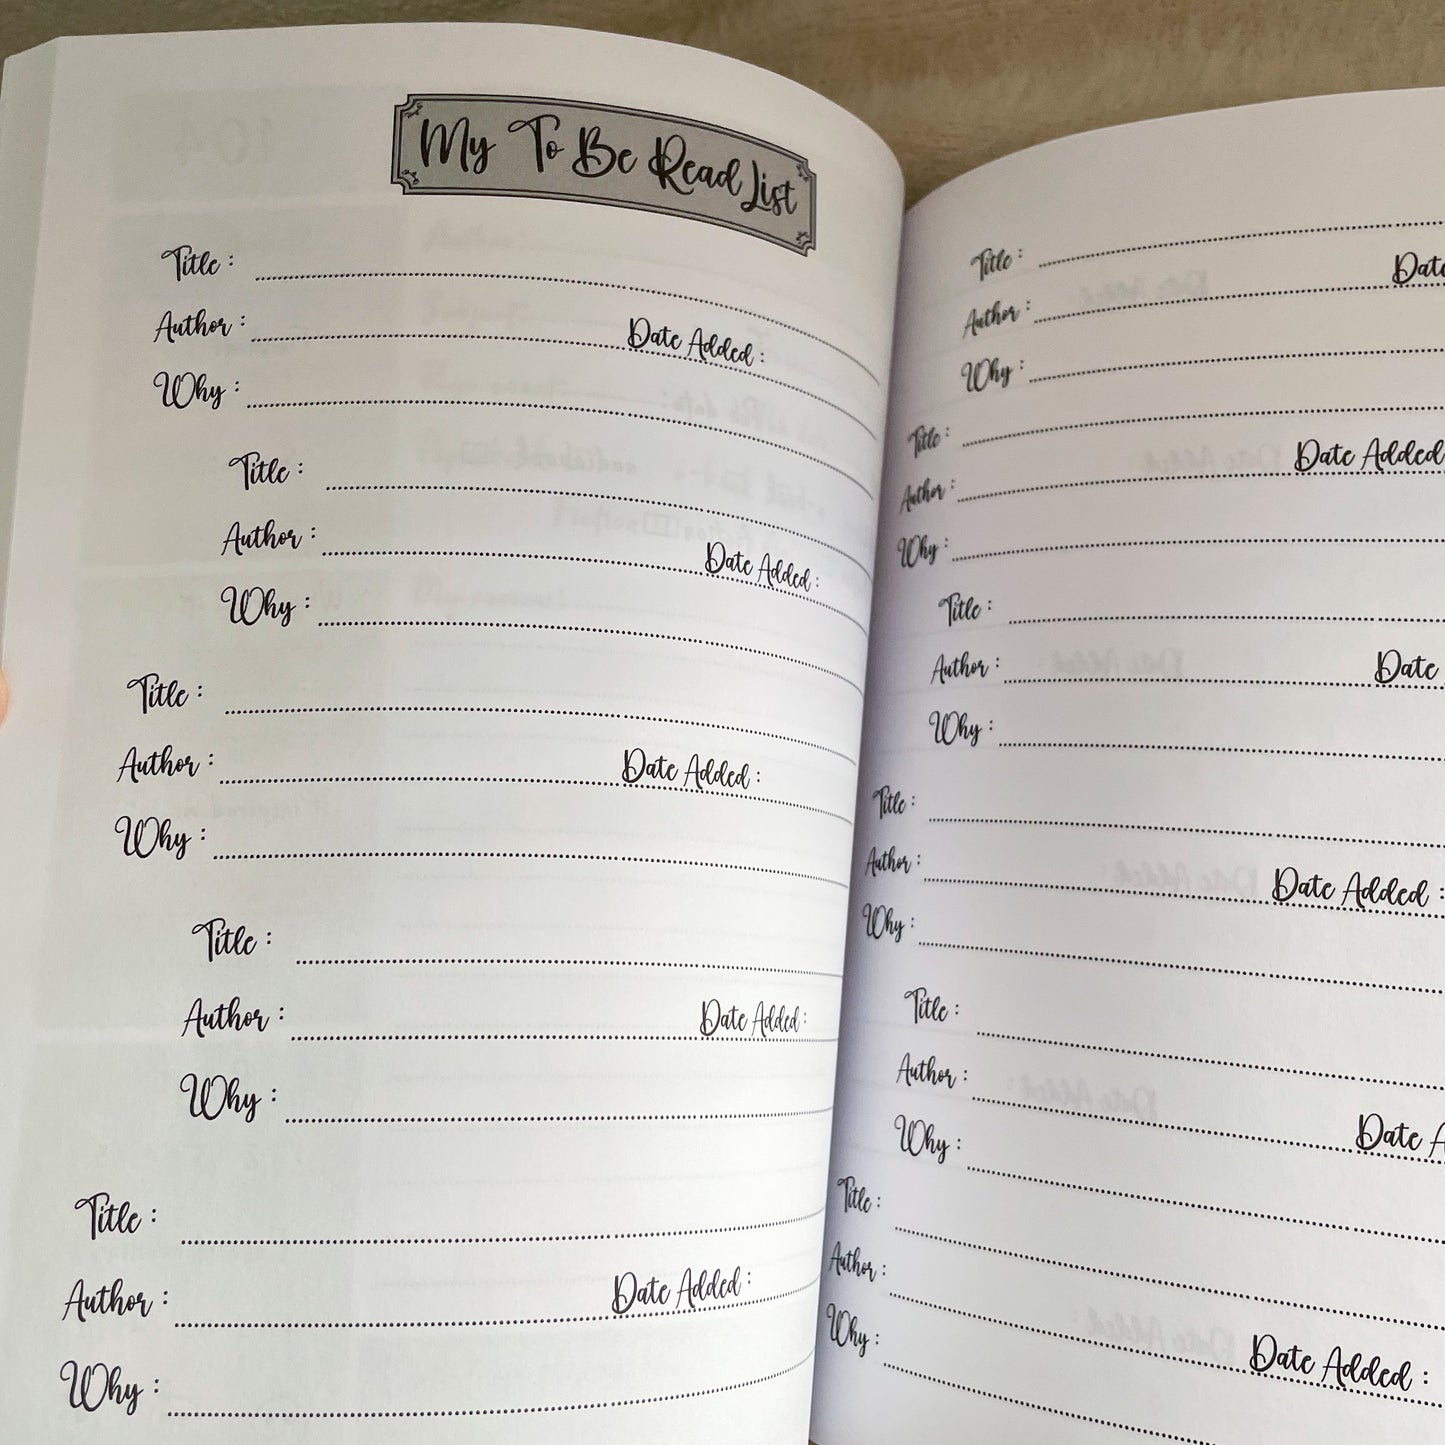 My To Be Read List
Title :
Author : Date Added :
Why :
Title :
Author : Date Added :
Why :
Title :
Author : Date Added :
Why :
Title :
Author : Date Added :
Why :
Title :
Author : Date Added :
Why :
Title :
Author : Date
Why :
Title :
Author : Date Added
Why :
Title :
Author : Date
Why :
Title :
Author : Date Added :
Why :
Title :
Author : Date A
Why :
Title :
Author : Date Added :
Why :